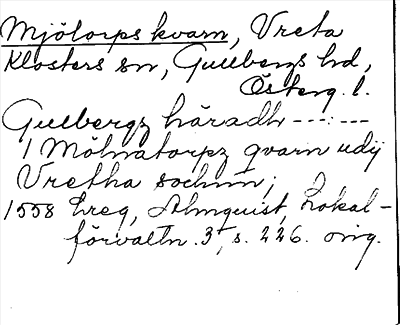 Mjölorps kvarn, Vreta
Klosters sn, Gullbergs hd,
Österg. l.
Gulbergz häradh ---:---
1 Mölnatorpz qvarn udij
Vretha sochnn;
1558 Lreg, Almquist, Lokal-
förvaltn. 3, s. 226. orig.